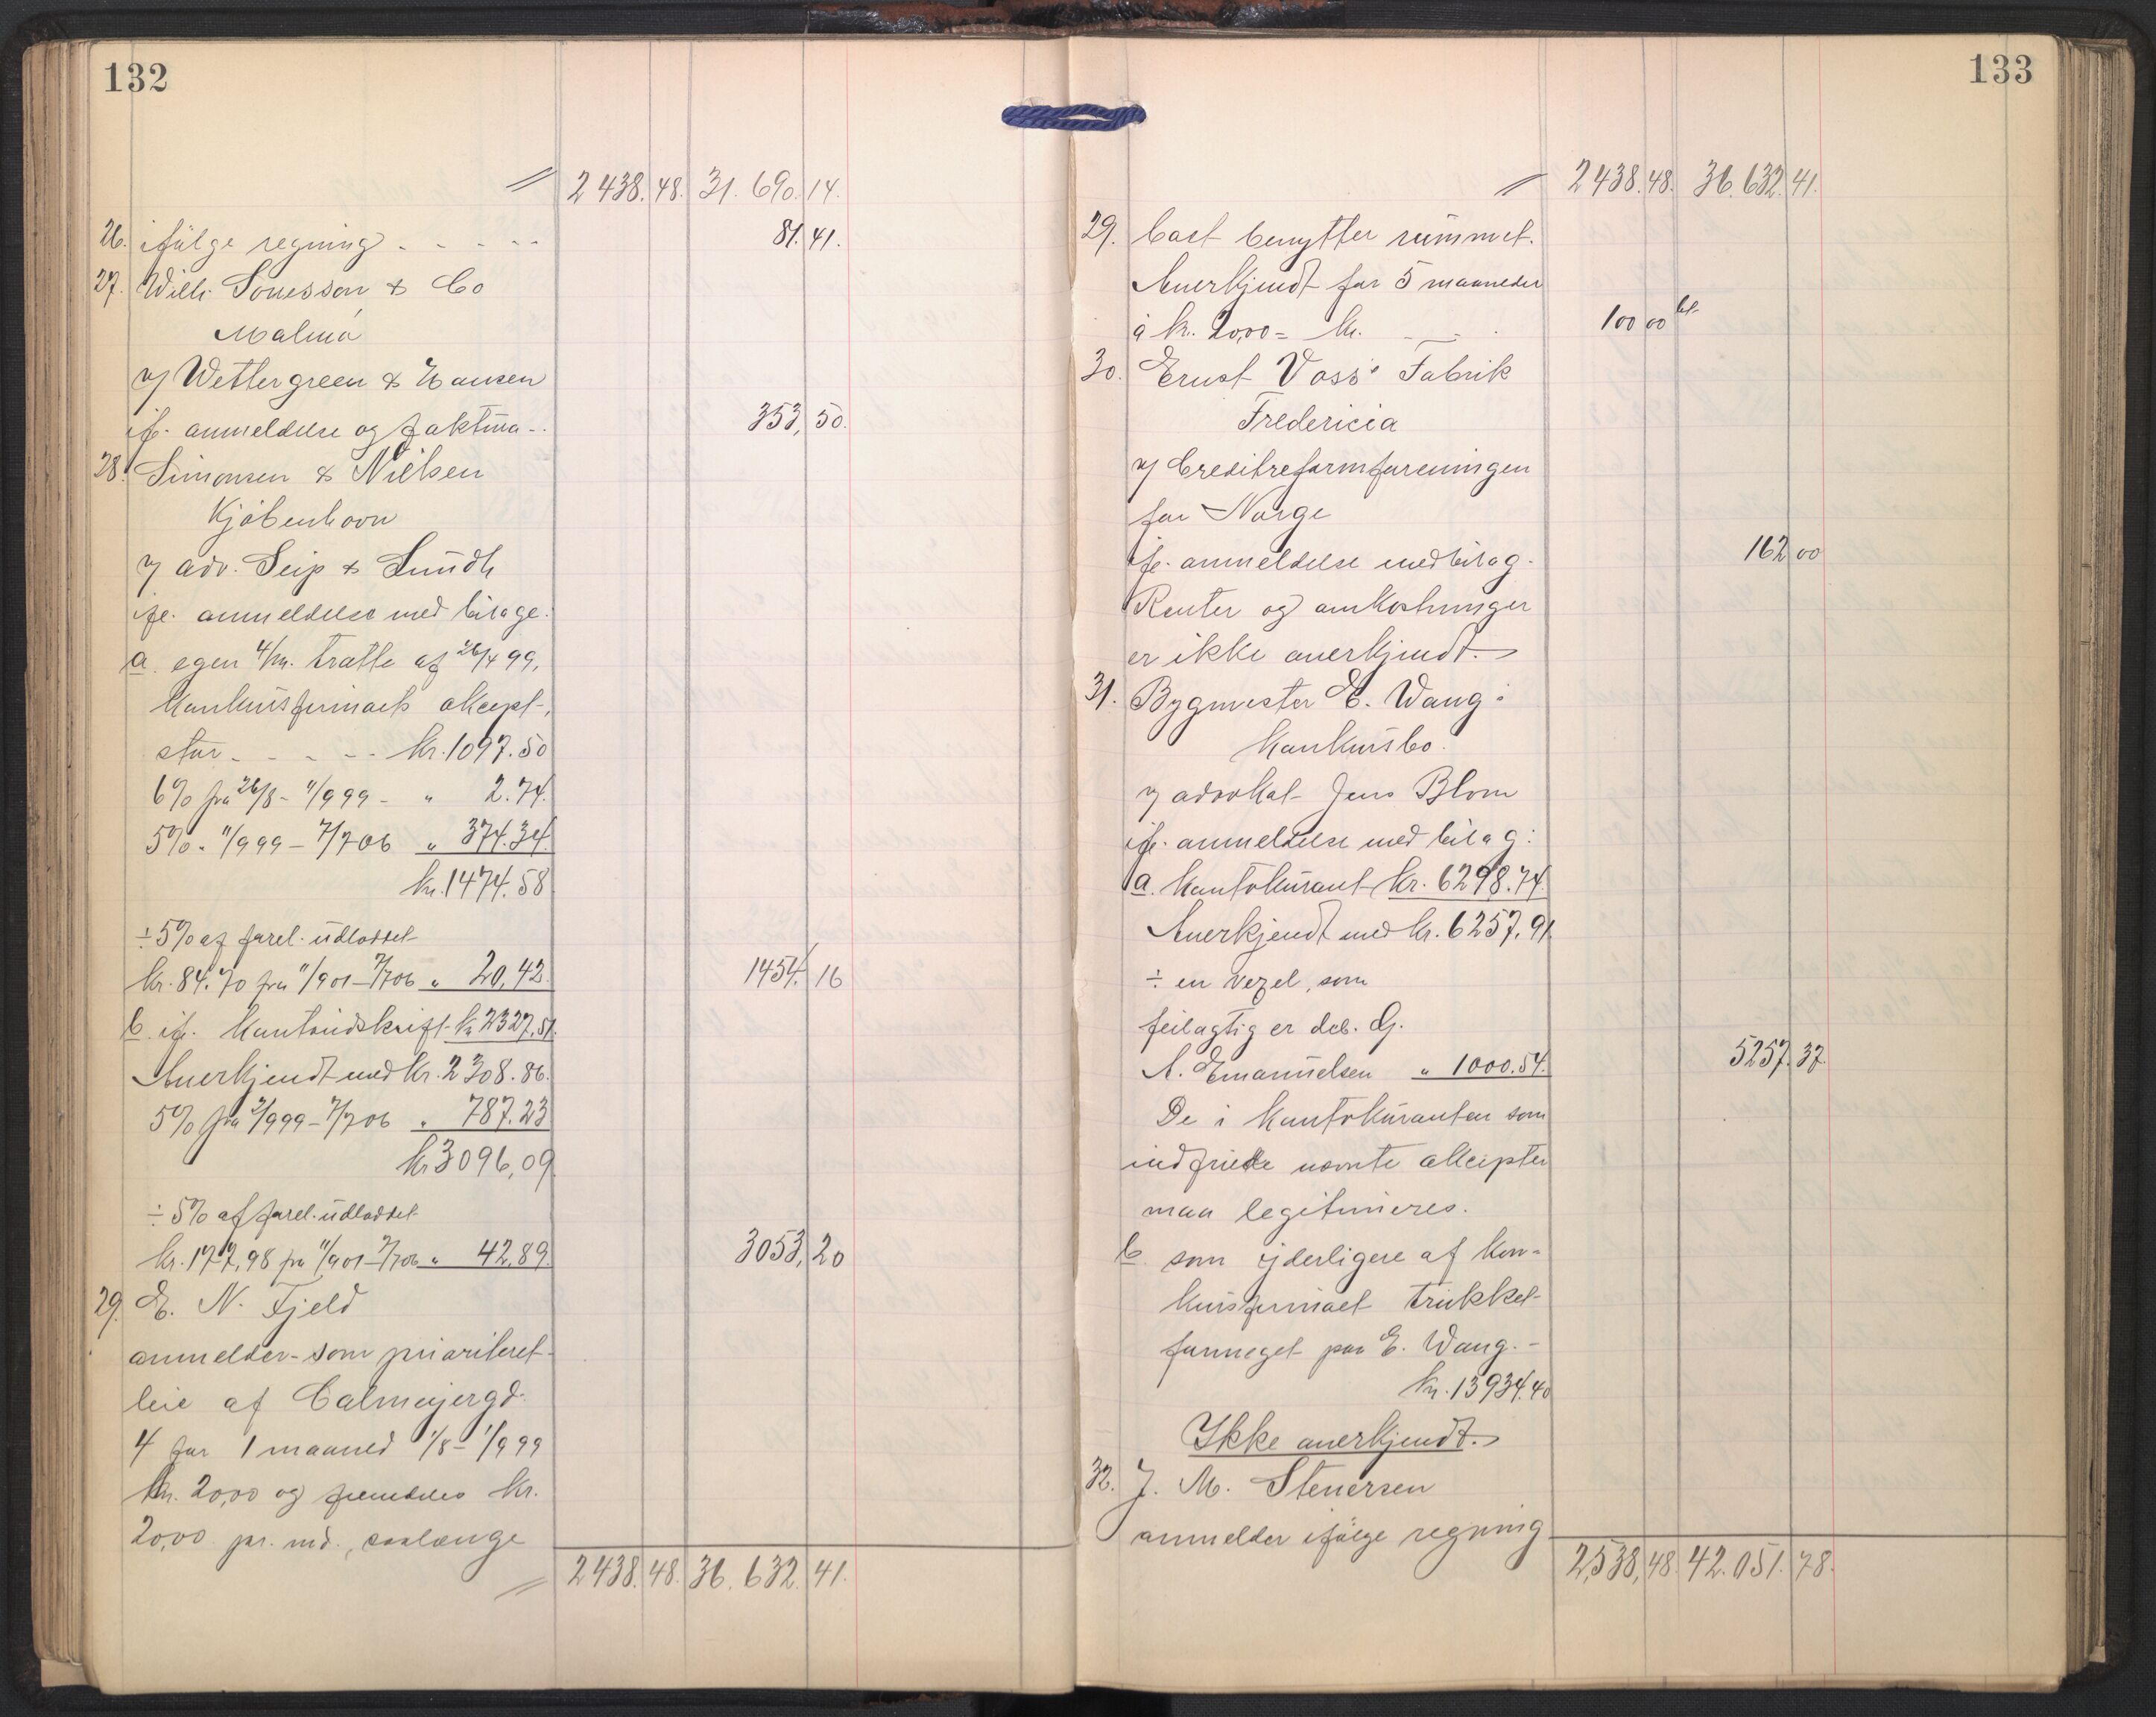 132
2438.48. 31.690.14.
26. ifölge regning - - - - - 81.41.
27. Wilh. Sonesson & Co
Malmö
v/ Wettergreen & Hansen
ifl. anmeldelse og faktura - . 353,50.
28. Simonsen & Nielsen
Kjöbenhavn
v/ adv. Seip & Lundh
ifl. anmeldelse med bilage:
a. egen 4/m. tratte af 26/4 99,
konkursfirmaets akcept,
stor - - - - kr. 1097.50
6% fra 26/8 - 11/9 99 - " 2.74.
5% " 11/9 99 - 7/7 06 " 374.34.
kr. 1474.58
÷ 5% af forel. udloddet
kr. 84.70 fra 11/9 01 - 7/7 06 " 20,42. 1454.16
b. ifl. kontoudskrift kr 2327,51.
Anerkjendt med kr. 2308.86.
5% fra 2/9 99 - 7/7 06 " 787.23
kr 3096,09
÷ 5% af forel. udloddet
kr. 177,98 fra 11/9 01 - 7/7 06 " 42,89. 3053,20
29. E. N. Fjeld
anmelder som prioriteret
leie af Calmeyergd.
4 for 1 maaned 1/8 - 1/9 99
kr. 20,00 og fremdeles kr.
20,00 pr. md., saalænge
2438.48. 36.632.41.
133
2438.48. 36.632.41.
29. boet benytter rummet.
Anerkjendt for 5 maaneder
à kr. 20,00 = kr. - - . 100 00 bet.
30. Ernst Voss' Fabrik
Fredericia
v/ Creditreformforeningen
for Norge
ifl. anmeldelse med bilag. 162 00
Renter og omkostninger
er ikke anerkjendt.
31. Bygmester E. Wang's
konkursbo.
v/ advokat Jens Blom
ifl. anmeldelse med bilag:
a. Kontokurant kr. 6298.74.
Anerkjendt med kr. 6257.91.
÷ en vexel, som
feilagtig er deb. G.
A. Emanuelsen " 1000.54. 5257.37.
De i kontokuranten som
indfriede nævnte akcepter
maa legitimeres.
b. som yderligere af kon-
kursfirmaet trukket
formeget paa E. Wang. -
kr. 13934.40
Ikke anerkjendt.
32. J. M. Stenersen
anmelder ifölge regning
2,538,48. 42.051.78.